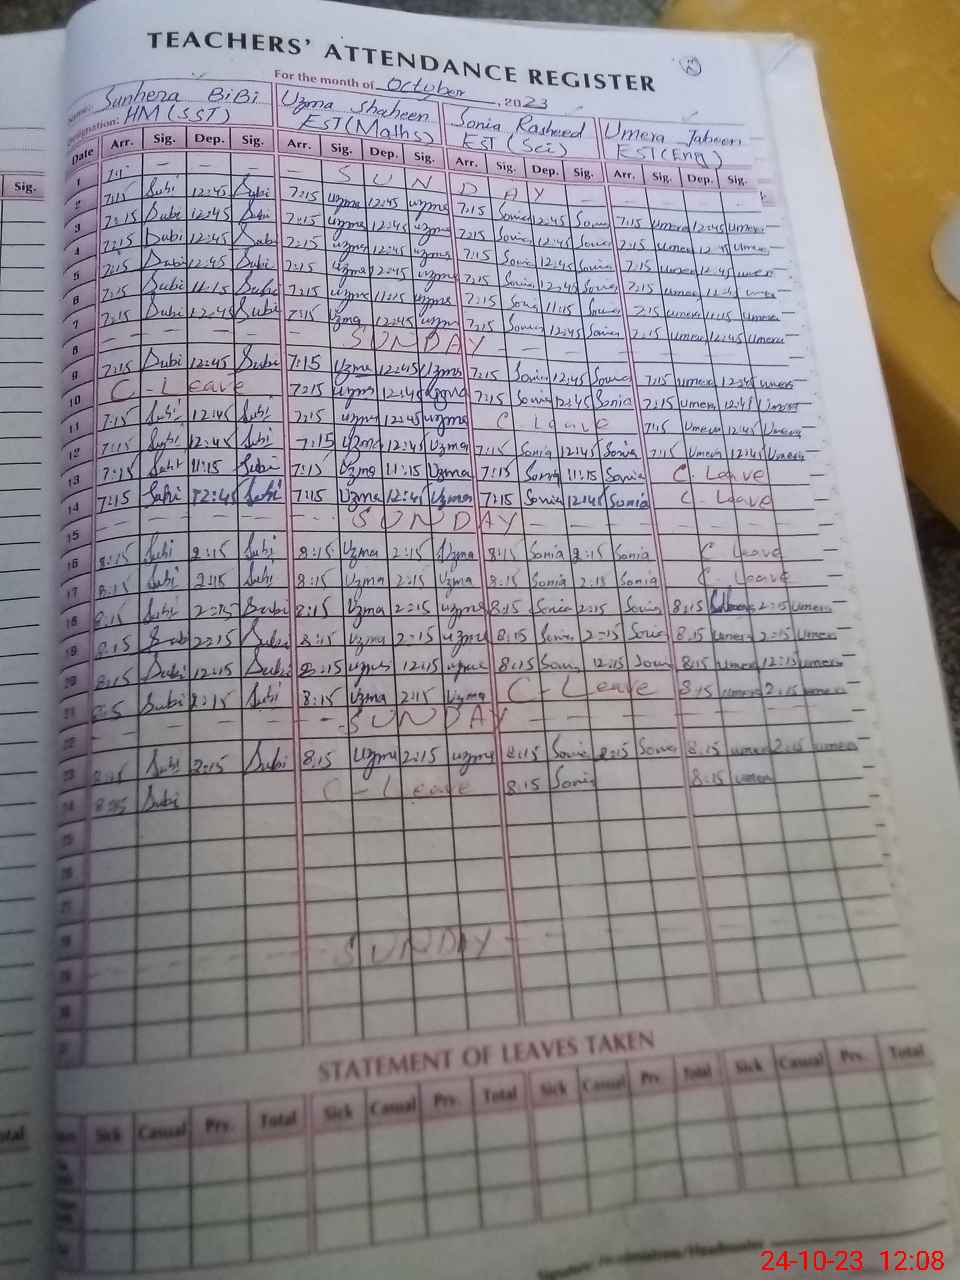 TEACHERS' ATTENDANCE REGISTER
For the month of October, 2023
Name: Sunhera BiBi Uzma Shaheen Sonia Rasheed Umera Jabeen
Designation: HM (SST) EST (Maths) EST (Sci) EST (Eng)
Date Arr. Sig. Dep. Sig. Arr. Sig. Dep. Sig. Arr. Sig. Dep. Sig. Arr. Sig. Dep. Sig.
Sig.
1 SUNDAY
2 7:15 Subi 12:45 Subi 7:15 uzma 12:45 uzma 7:15 Sonia 12:45 Sonia 7:15 umera 12:45 umera
3 7:15 Subi 12:45 Subi 7:15 uzma 12:45 uzma 7:15 Sonia 12:45 Sonia 7:15 umera 12:45 umera
4 7:15 Subi 12:45 Subi 7:15 uzma 12:45 uzma 7:15 Sonia 12:45 Sonia 7:15 umera 12:45 umera
5 7:15 Subi 12:45 Subi 7:15 uzma 12:45 uzma 7:15 Sonia 12:45 Sonia 7:15 umera
6 7:15 Subi 11:15 Subi 7:15 uzma 11:15 uzma 7:15 Sonia 11:15 Sonia 7:15 umera 11:15 umera
7 7:15 Subi 12:45 Subi 7:15 uzma 12:45 uzma 7:15 Sonia 12:45 Sonia 7:15 umera 12:45 umera
8 SUNDAY
9 7:15 Subi 12:45 Subi 7:15 uzma 12:45 Uzma 7:15 Sonia 12:45 Sonia 7:15 umera 12:45 umera
10 C-Leave 7:15 uzma 12:45 uzma 7:15 Sonia 12:45 Sonia 7:15 umera 12:45
11 7:15 Subi 12:45 Subi 7:15 uzma 12:45 uzma C Leave 7:15 Umera 12:45 Umera
12 7:15 Subi 12:45 Subi 7:15 uzma 12:45 Uzma 7:15 Sonia 12:45 Sonia 7:15 Umera 12:45 Umera
13 7:15 Subi 11:15 Subi 7:15 Uzma 11:15 Uzma 7:15 Sonia 11:15 Sonia C-Leave
14 7:15 Subi 12:45 Subi 7:15 Uzma 12:45 Uzma 7:15 Sonia 12:45 Sonia C-Leave
15 SUNDAY
16 8:15 Subi 2:15 Subi 8:15 Uzma 2:15 Uzma 8:15 Sonia 2:15 Sonia C Leave
17 8:15 Subi 2:15 Subi 8:15 Uzma 2:15 Uzma 8:15 Sonia 2:15 Sonia C-Leave
18 8:15 Subi 2:15 Subi 8:15 Uzma 2:15 uzma 8:15 Sonia 2:15 Sonia 8:15 2:15 umera
19 8:15 Subi 2:15 Subi 8:15 Uzma 2:15 uzma 8:15 Sonia 2:15 Sonia 8:15 umera 2:15 umera
20 8:15 Subi 12:15 Subi 8:15 12:15 8:15 Sonia 12:15 Sonia 8:15 umera 12:15 umera
21 8:15 Subi 2:15 Subi 8:15 Uzma 2:15 Uzma C-Leave 8:15 umera 2:15 umera
22 SUNDAY
23 8:15 Subi 2:15 Subi 8:15 Uzma 2:15 uzma 8:15 Sonia 2:15 Sonia 8:15 umera 2:15 umera
24 8:15 Subi C-Leave 8:15 Sonia 8:15 umera
25
26
27
SUNDAY
STATEMENT OF LEAVES TAKEN
Sick Casual Prv. Total Sick Casual Prv. Total Sick Casual Prv. Total Sick Casual Prv. Total
24-10-23 12:08